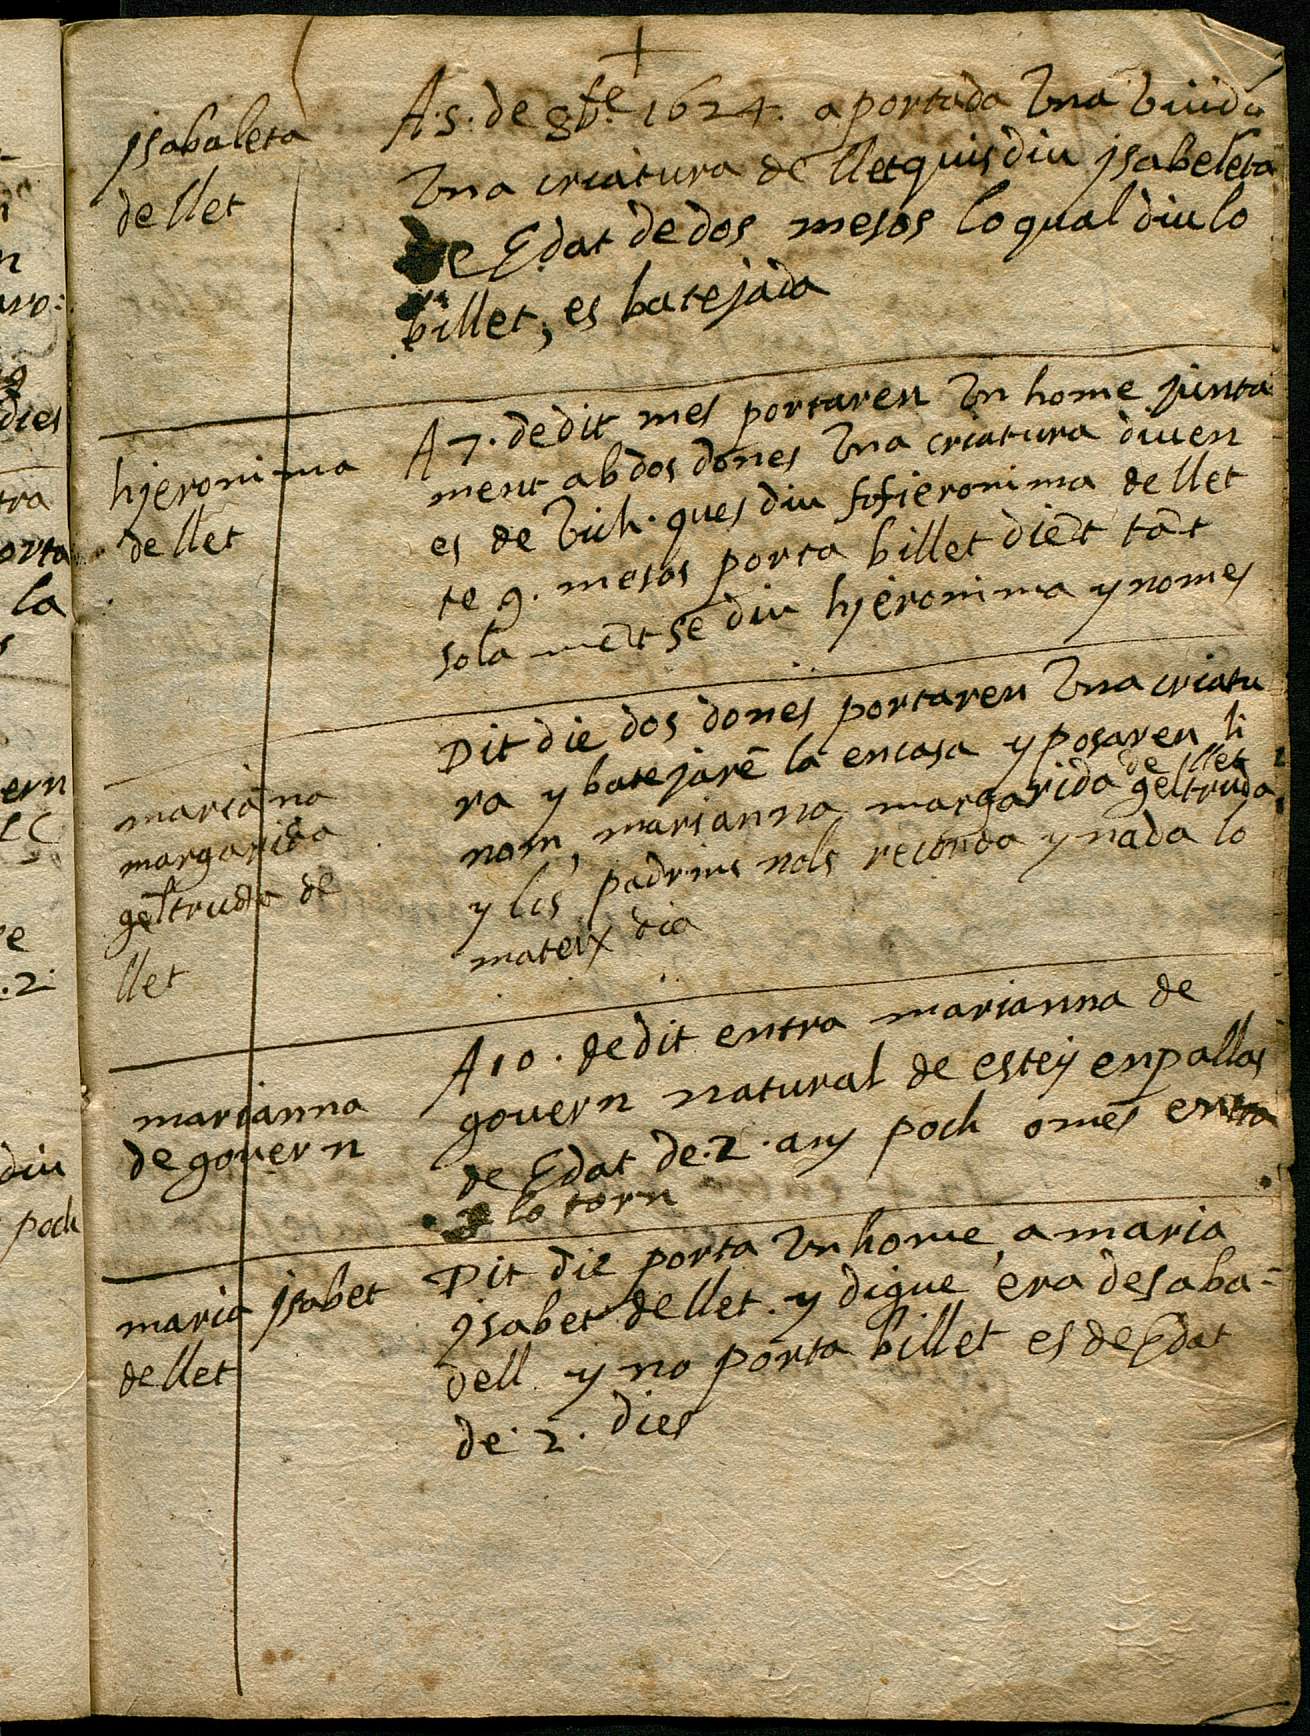 +
jsabaleta
de llet
A.5. de 8bre 1624. a portada Una Viuda
Una criatura de llet quis diu jsabeleta
de Edat de dos mesos lo qual diu lo
billet, es batejada
hjeronima
de llet
A 7. de dit mes portaren Un home junta
ment ab dos dones Una criatura diuen
es de Vich. ques diu hieronima de llet
te 9. mesos porta billet diēt tāt
sola mēt se diu hjeronima y nomes
mariana
margarida
geltruda de
llet
Dit die dos dones portaren Una criatu
ra y batejarē la en casa y posaren li
nom, marianna margarida geltruda
de llet
y lis padrins nols recorda y nada lo
mateix dia
marianna
de govern
A 10. de dit entra marianna de
govern natural de estey en pallas
de Edat de .2. any poch o mes entra
lo torn
maria jsabet
de llet
Dit die porta Un home a maria
ysabet de llet. y digue era de saba-
dell y no porta billet es de Edat
de .2. dies
dies
tra
orta
la
ern
.2.
diu
poch